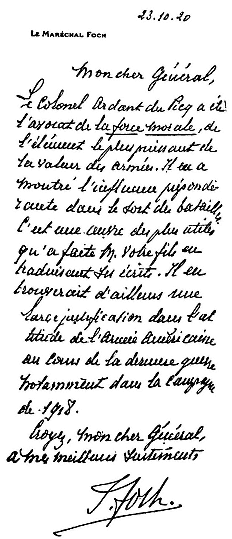 23.10.20
LE MARÉCHAL FOCH
Mon cher Général,
Le Colonel Ardant du Picq a été
l'avocat de la force morale, de
l'élément le plus puissant de
la valeur des armées. Il en a
montré l'influence prépondé
rante dans le sort des batailles.
C'est une œuvre des plus utiles
qu'a faite M. Votre fils en
traduisant ses écrits. Il en
trouverait d'ailleurs une
large justification dans l'at
titude de l'Armée Américaine
au cours de la dernière guerre
notamment dans la campagne
de 1918.
Croyez, mon cher Général,
à mes meilleurs sentiments
F. Foch.